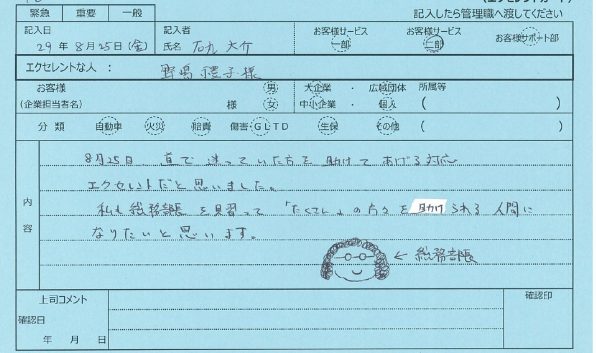 緊急 重要 一般
(エクセレントカード)
記入したら管理職へ渡してください
記入日 29年8月25日(金)
記入者 氏名 石丸 大介
お客様サービス一部
お客様サービス二部
お客様サポート部
エクセレントな人: 野嶌 禮子 様
お客様(企業担当者名) 様 男 女
大企業 ・ 広域団体
中小企業 ・ 個人
所属等 ( )
分類 自動車 火災 賠責 傷害 GLTD 生保 その他 ( )
内容
8月25日、道で迷っていた方を助けてあげる対応
エクセレントだと思いました。
私も総務部長を見習って「たくさん」の方々を助けられる人間に
なりたいと思います。
← 総務部長
上司コメント
確認印
確認日
年 月 日